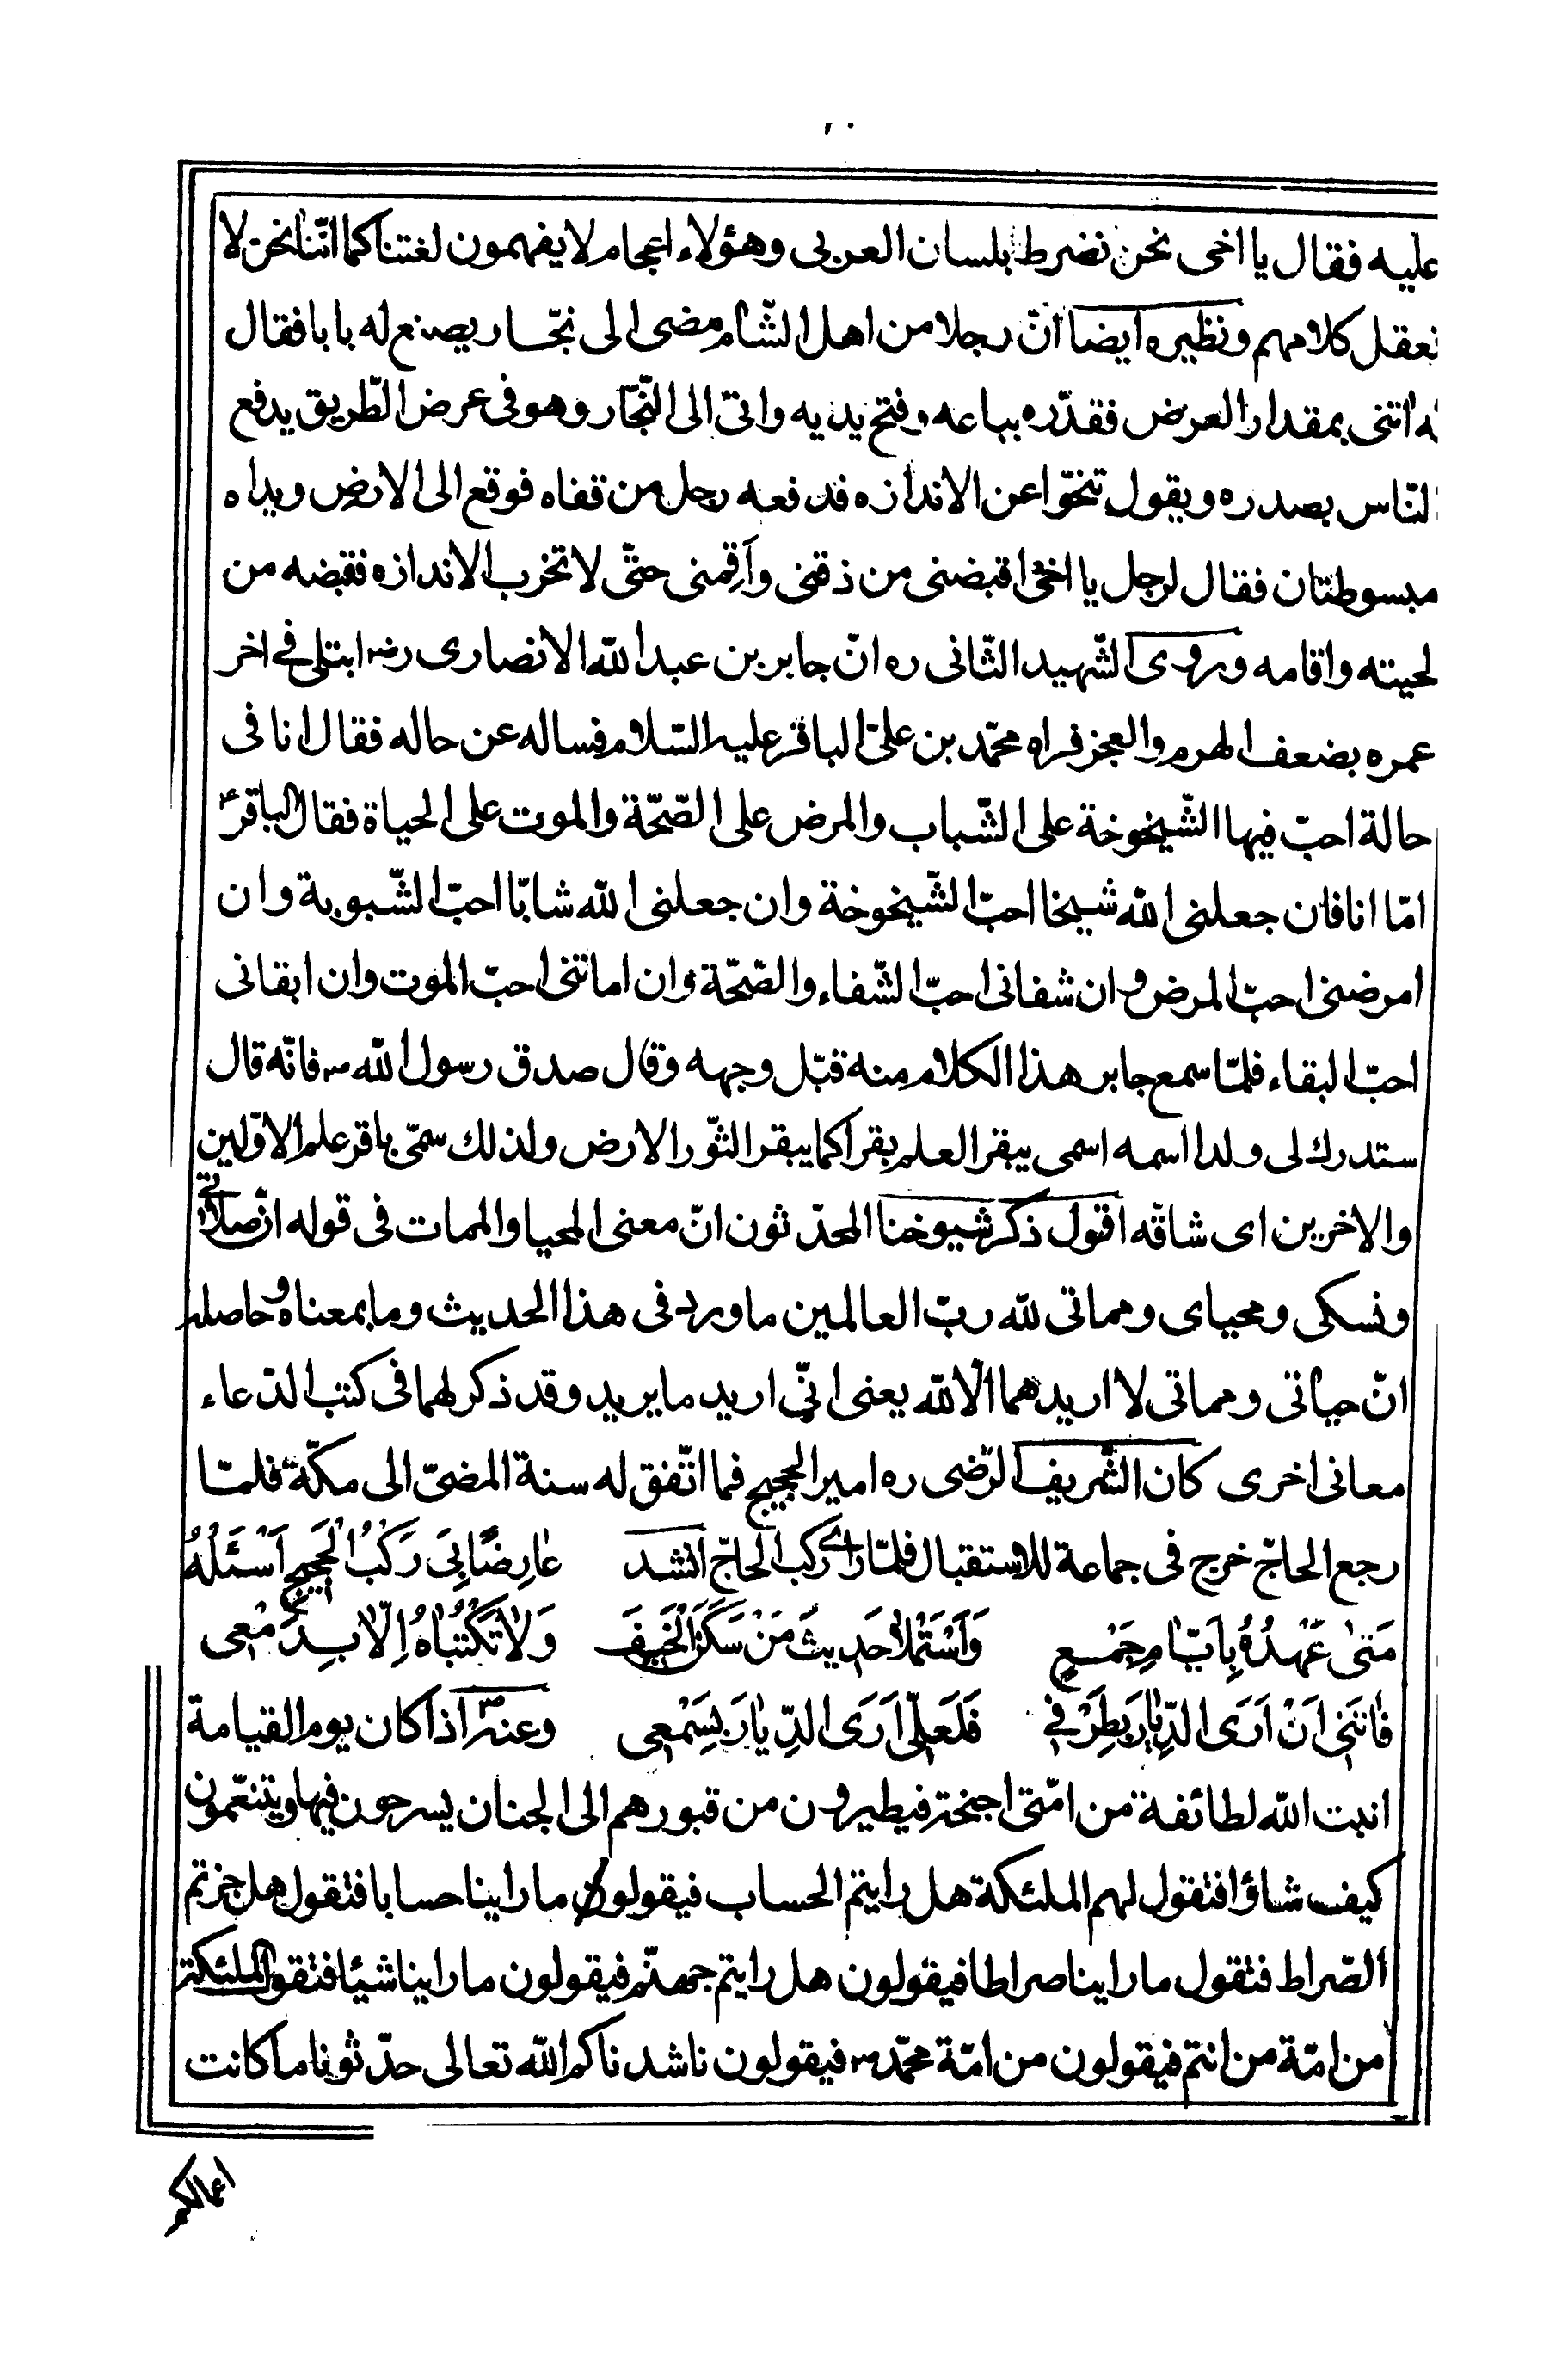 عليه فقال يا اخى نحن نضرط بلسان العربى وهؤلاء اعجام لا يفهمون لغتنا كما انّنا نحن لا
نعقل كلامهم ونظيره ايضا انّ رجلا من اهل الشّام مضى الى نجّار يصنع له بابا فقال
له اتنى بمقدار العرض فقدّره بباعه وفتح يديه واتى الى النّجّار وهو فى عرض الطّريق يدفع
النّاس بصدره ويقول تنحّوا عن الاندازه فدفعه رجل من قفاه فوقع الى الارض ويداه
مبسوطتان فقال لرجل يا اخى اقبضنى من ذقنى وَاَقِمنى حتّى لا تخرب الاندازه فقبضه من
لحيته واقامه وروى الشّهيد الثّانى ره انّ جابر بن عبد الله الانصارى رضه ابتلى في اخر
عمره بضعف الهرم والعجز فراه محمّد بن علىّ الباقر عليه السّلام فساله عن حاله فقال انا فى
حالة احبّ فيها الشّيخوخة على الشّباب والمرض على الصّحّة والموت على الحياة فقال الباقرع
امّا انا فان جعلنى الله شيخا احبّ الشّيخوخة وان جعلنى الله شابّا احبّ الشّبوبة وان
امرضنى احبّ المرض وان شفانى احبّ الشّفاء والصّحّة وان اماتنى احبّ الموت وان ابقانى
احبّ البقاء فلمّا سمع جابر هذا الكلام منه قبّل وجهه وقال صدق رسول الله ص فانّه قال
ستدرك لى ولدا اسمه اسمى يبقر العلم بقرا كما يبقر الثّور الارض ولذلك سمّى باقر علم الاوّلين
والاخرين اى شاقّه اقول ذكر شيوخنا المحدّثون انّ معنى المحيا والممات فى قوله انّ صلاتي
ونسكى ومحياى ومماتى لله ربّ العالمين ما ورد فى هذا الحديث وما بمعناه وحاصله
انّ حياتى ومماتى لا اريدهما الّا لله يعنى انّى اريد ما يريد وقد ذكر لهما فى كتب الدّعاء
معانى اخرى كان الشّريف الرّضى ره امير الحجيج فما اتّفق له سنة المضىّ الى مكّة فلمّا
رجع الحاجّ خرج فى جماعة للاستقبال فلمّا راى ركب الحاجّ انشد عٰارِضًا بِىَ رَكْبُ الْحَجِيجِ اَسْئَلُهُ
مَتىٰ عَهْدُهُ بِاَيّٰامِ جَمْعٍ وَاَسْتَمْلٰا حَدِيثَ مَنْ سَكَنَ الْخَيفَ وَلٰا تَكْتُبٰاهُ اِلّٰا بِدَمْعِى
فٰاتَنِى اَنْ اَرَى الدِّيٰارَ بِطَرْفِي فَلَعَلِّى اَرَى الدِّيٰارَ بِسَمْعِى وعنه ص اذا كان يوم القيامة
انبت الله لطائفة من امّتى اجنحة فيطيرون من قبورهم الى الجنان يسرحون فيها ويتنعّمون
كيف شاؤا فتقول لهم الملئكة هل رايتم الحساب فيقولون ما راينا حسابا فتقول هل جزتم
الصّراط فتقول ما راينا صراطا فيقولون هل رايتم جهنّم فيقولون ما راينا شيئا فتقول الملئكة
من امّة من انتم فيقولون من امّة محمّد ص فيقولون ناشدناكم الله تعالى حدّثونا ما كانت
اعمالكم